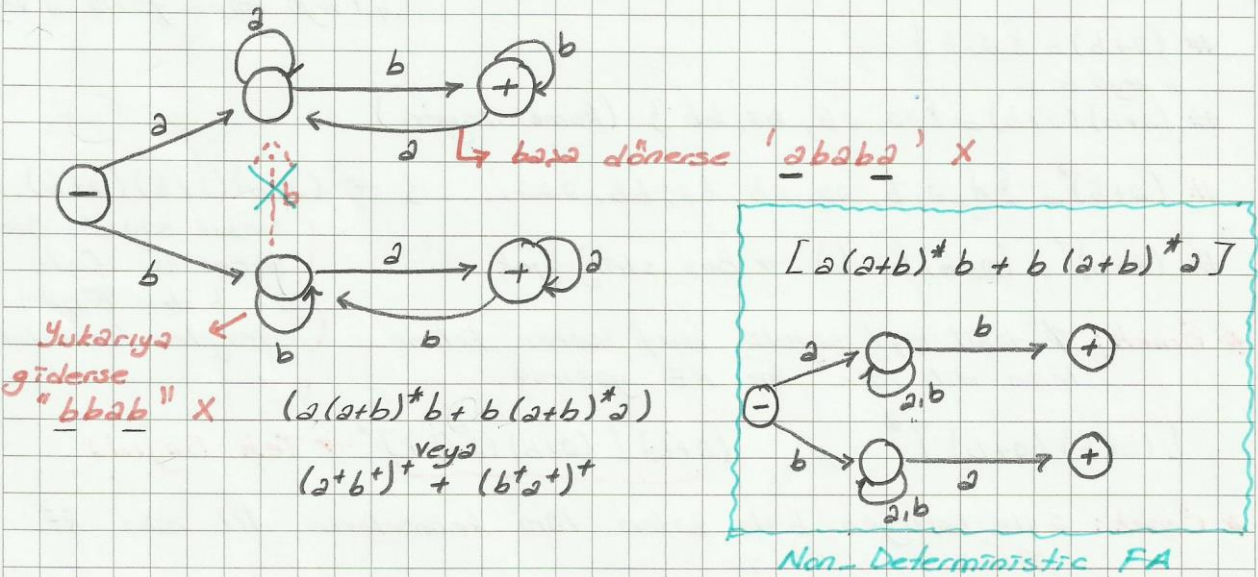 a
b
b
a
a
↳ başa dönerse 'ababa' X
-
+
b
a
a
b
b
b
+
Yukarıya
giderse
"bbab" X
(a(a+b)*b + b(a+b)*a)
veya
(a⁺b⁺)⁺ + (b⁺a⁺)⁺
[a(a+b)*b + b(a+b)*a]
a
b
+
a,b
-
b
a
+
a,b
Non-Deterministic FA